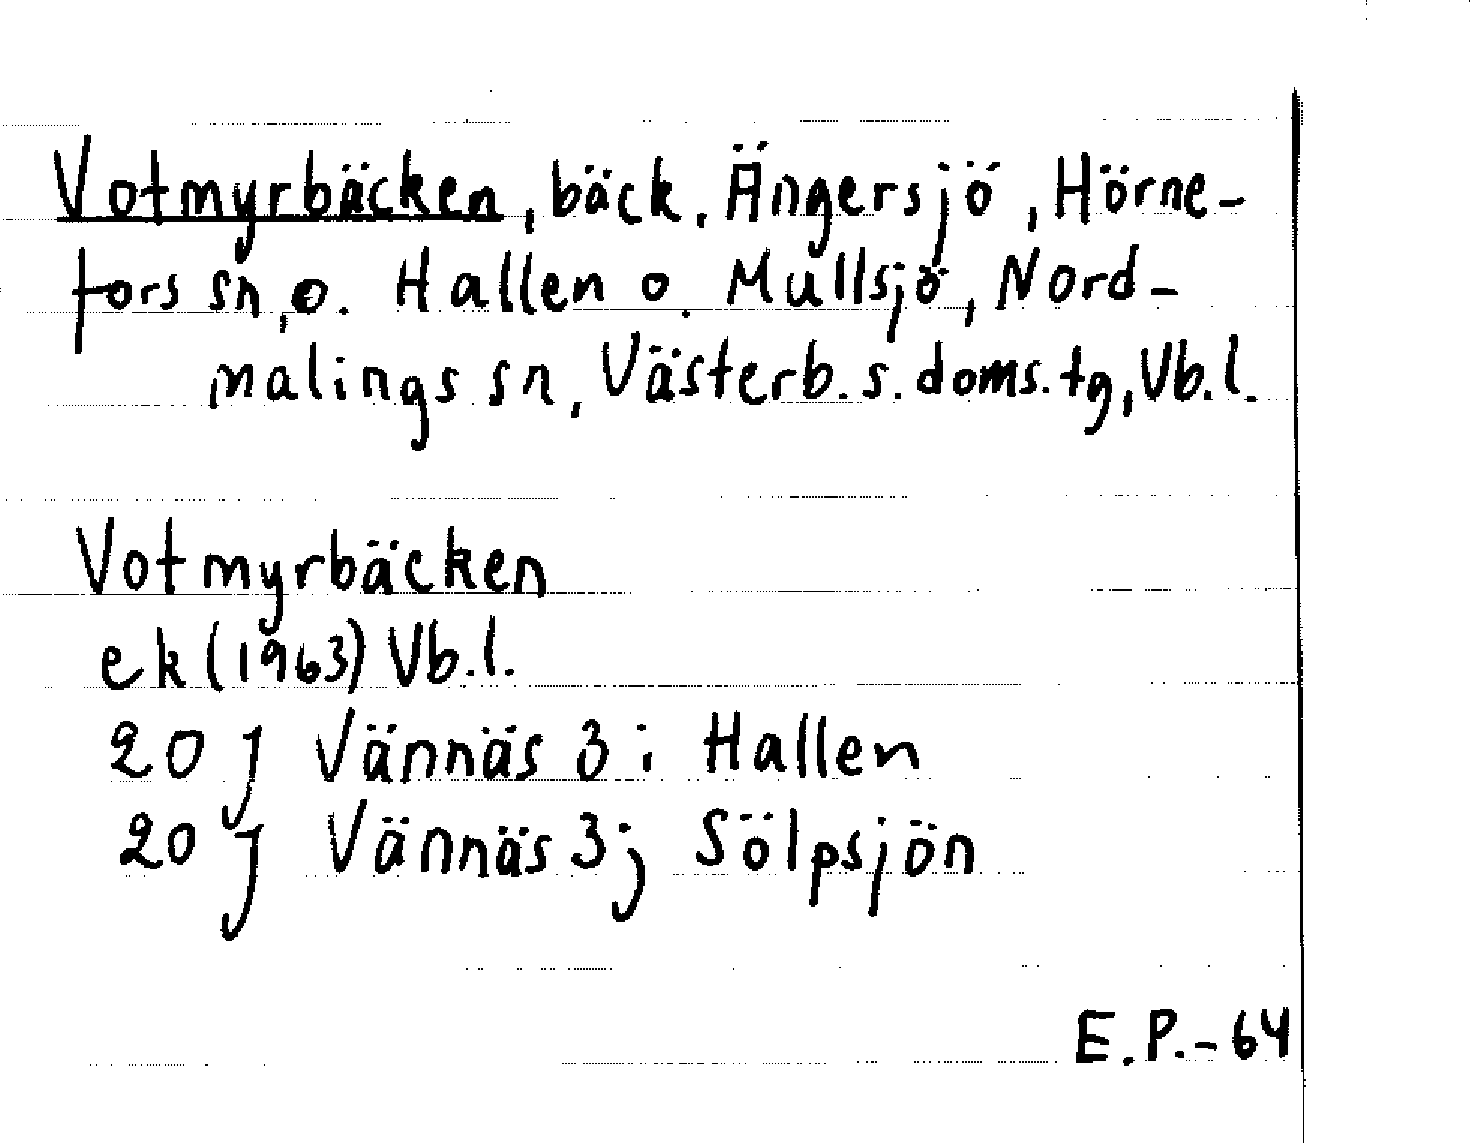 Votmyrbäcken, bäck. Ängersjö, Hörne-
fors sn, o. Hallen o. Mullsjö, Nord-
malings sn, Västerb. s. doms. tg, Vb. l.
Votmyrbäcken
ek (1963) Vb. l.
20 J Vännäs 3 i Hallen
20 J Vännäs 3 j Sölpsjön
E. P. - 64